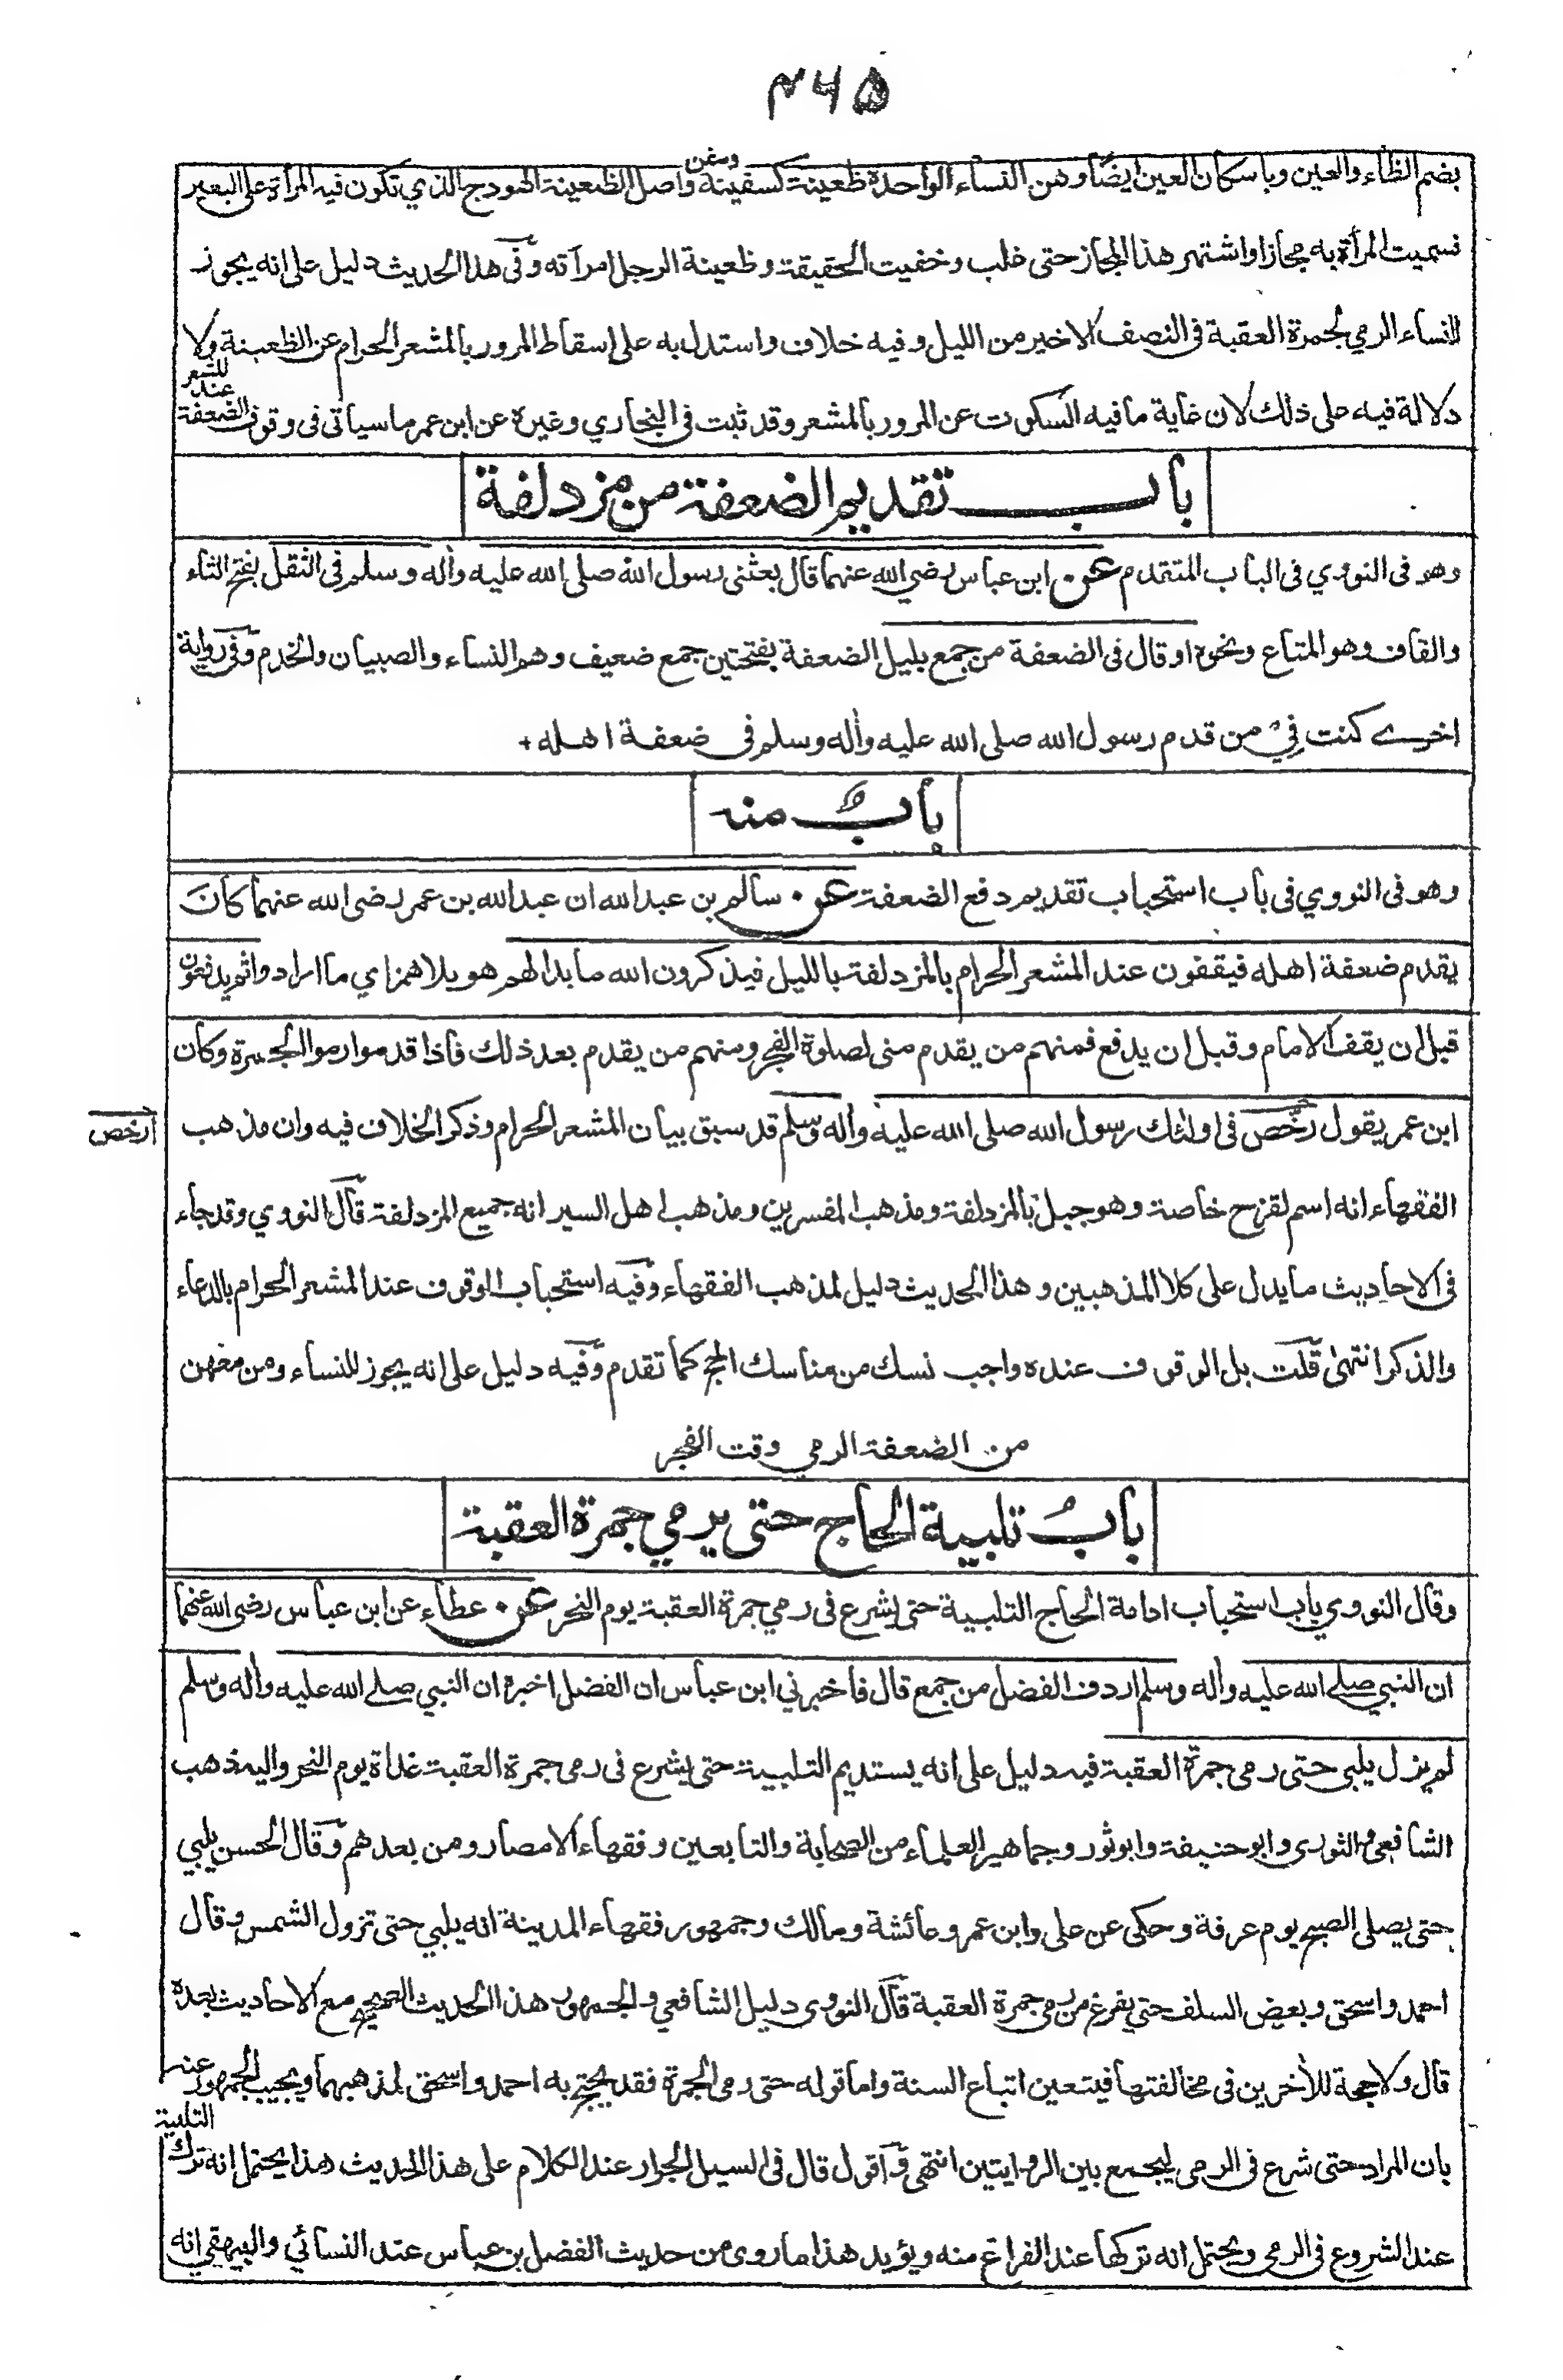 ۴۶۵
بضم الظاء والعين وباسكان العين ايضا وهن النساء الواحدة ظعينة كسفينة واصل الظعينة الهودج الذي تكون فيه المرأة على البعير
فسميت المرأة به مجازا واشتهر هذا المجاز حتى غلب وخفيت الحقيقة وظعينة الرجل امرأته وفى هذا الحديث دليل على انه يجوز
للنساء الرمي لجمرة العقبة فى النصف الاخير من الليل وفيه خلاف واستدل به على اسقاط المرور بالمشعر الحرام عن الظعينة ولا
دلالة فيه على ذلك لان غاية ما فيه السكوت عن المرور بالمشعر وقد ثبت فى البخاري وغيرة عن ابن عمر ما سياتى فى وقوف الضعفة
عند المشعر
باب تقديم الضعفة من مزدلفة
وهو فى النووي فى الباب المتقدم عن ابن عباس رضي الله عنهما قال بعثنى رسول الله صلى الله عليه وأله وسلم فى الثقل بفتح الثاء
والقاف وهو المتاع ونحوه او قال فى الضعفة من جمع بليل الضعفة بفتحتين جمع ضعيف وهم النساء والصبيان والخدم وفى رواية
اخرے كنت في من قدم رسول الله صلى الله عليه وأله وسلم فى ضعفة اهله +
باب منه
وهو فى النووي فى باب استحباب تقديم دفع الضعفة عن سالم بن عبد الله ان عبد الله بن عمر رضى الله عنهما كان
يقدم ضعفة اهله فيقفون عند المشعر الحرام بالمزدلفة بالليل فيذكرون الله ما بدا لهم هو بلا همز اي ما ارادوا ثم يدفعون
قبل ان يقف الامام وقبل ان يدفع فمنهم من يقدم منى لصلوة الفجر ومنهم من يقدم بعد ذلك فاذا قدموا رموا الجمرة وكان
ابن عمر يقول رخص فى اولئك رسول الله صلى الله عليه وأله وسلم قد سبق بيان المشعر الحرام وذكر الخلاف فيه وان مذهب
ارخص
الفقهاء انه اسم لقزح خاصة وهو جبل بالمزدلفة ومذهب المفسرين ومذهب اهل السير انه جميع المزدلفة قال النووي وقد جاء
فى الاحاديث ما يدل على كلا المذهبين وهذا الحديث دليل لمذهب الفقهاء وفيه استحباب الوقوف عند المشعر الحرام بالدعاء
والذكر انتهى قلت بل الوقوف عنده واجب نسك من مناسك الحج كما تقدم وفيه دليل على انه يجوز للنساء ومن معهن
من الضعفة الرمي وقت الفجر
باب تلبية الحاج حتى يرمي جمرة العقبة
وقال النووي باب استحباب ادامة الحاج التلبية حتى يشرع فى رمي جمرة العقبة يوم النحر عن عطاء عن ابن عباس رضى الله عنهما
ان النبي صلے الله عليه وأله وسلم اردف الفضل من جمع قال فاخبرني ابن عباس ان الفضل اخبره ان النبي صلے الله عليه وأله وسلم
لم يزل يلبى حتى رمى جمرة العقبة فيه دليل على انه يستديم التلبية حتى يشرع فى رمى جمرة العقبة غداة يوم النحر واليه ذهب
الشافعى والثورى وابو حنيفة وابو ثور وجماهير العلماء من الصحابة والتابعين وفقهاء الامصار ومن بعدهم وقال الحسن يلبي
حتى يصلى الصبح يوم عرفة وحكى عن على وابن عمر وعائشة ومالك وجمهور فقهاء المدينة انه يلبي حتى تزول الشمس وقال
احمد واسحق وبعض السلف حتى يفرغ من رمي جمرة العقبة قال النووى دليل الشافعي والجمهور هذا الحديث الصحيح مع الاحاديث بعده
قال ولا حجة للأخرين فى مخالفتها فيتعين اتباع السنة واما قوله حتى رمى الجمرة فقد يحتج به احمد واسحق لمذهبهما ويجيب الجمهور عنه
بان المراد حتى شرع فى الرمى ليجمع بين الروايتين انتهى واقول قال فى السيل الجرار عند الكلام على هذا الحديث هذا يحتمل انه ترك
التلبية
عند الشروع فى الرمى ويحتمل انه تركها عند الفراغ منه ويؤيد هذا ما روى من حديث الفضل بن عباس عند النسائي والبيهقي انه